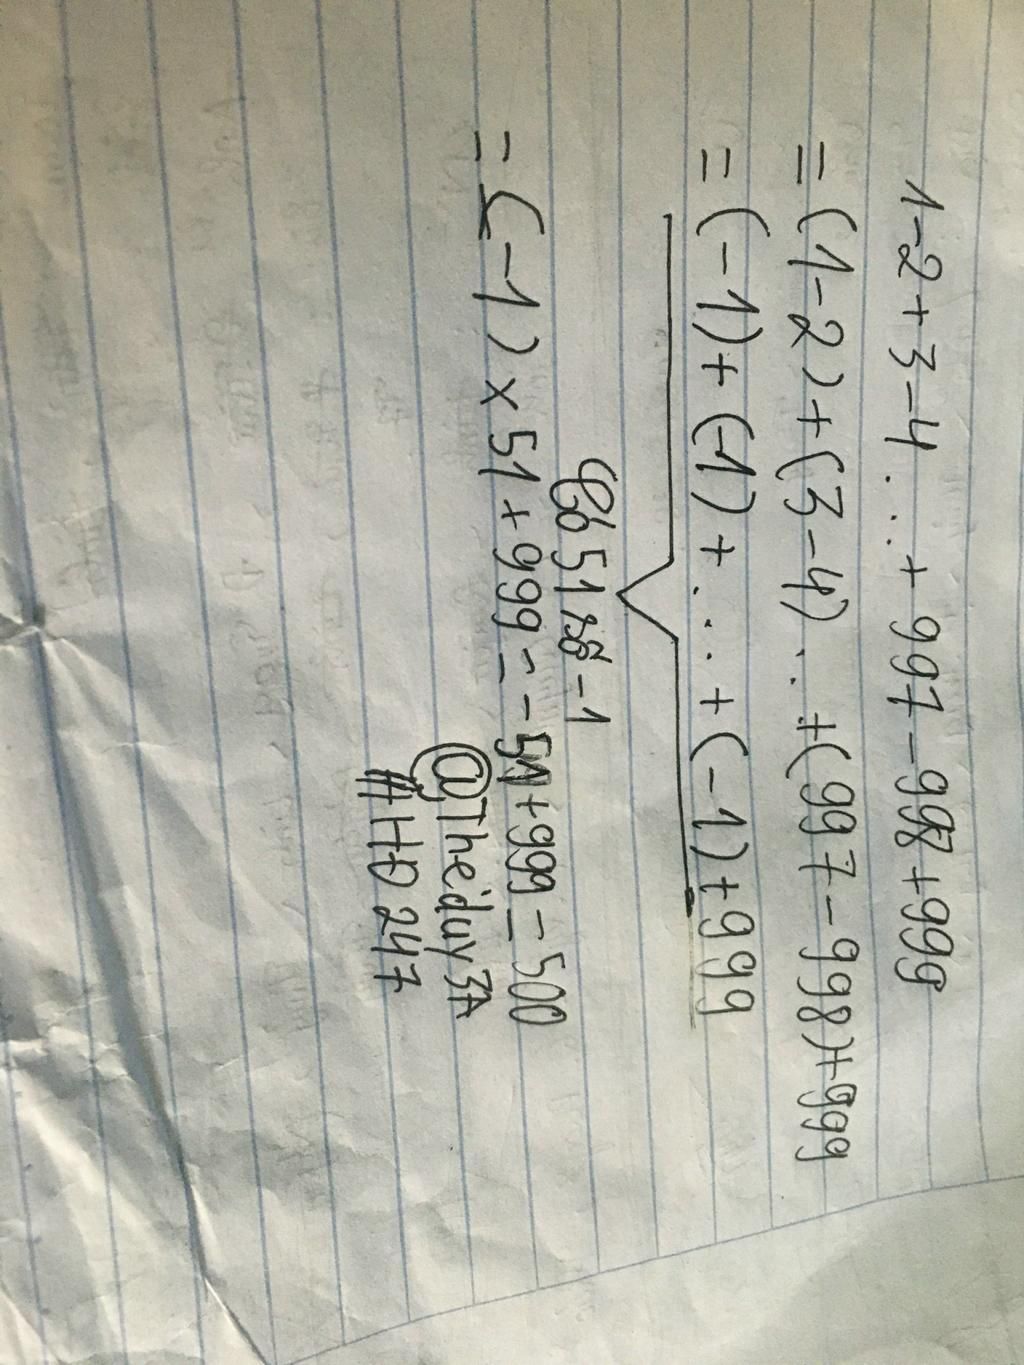 1-2+3-4...+997-998+999
=(1-2)+(3-4)...+(997-998)+999
=(-1)+(-1)+...+(-1)+999
Có 51 số -1
=(-1)×51+999=-51+999=500
@Theduy3A
#HD247